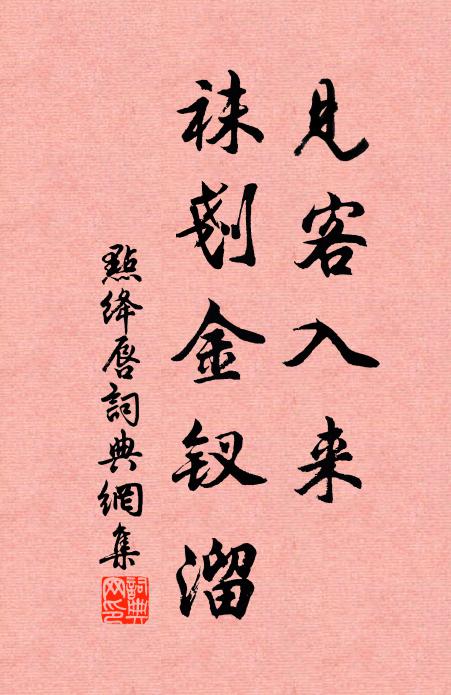 見客入来
袜剗金钗溜
點绛唇詞典網集
詞典网印